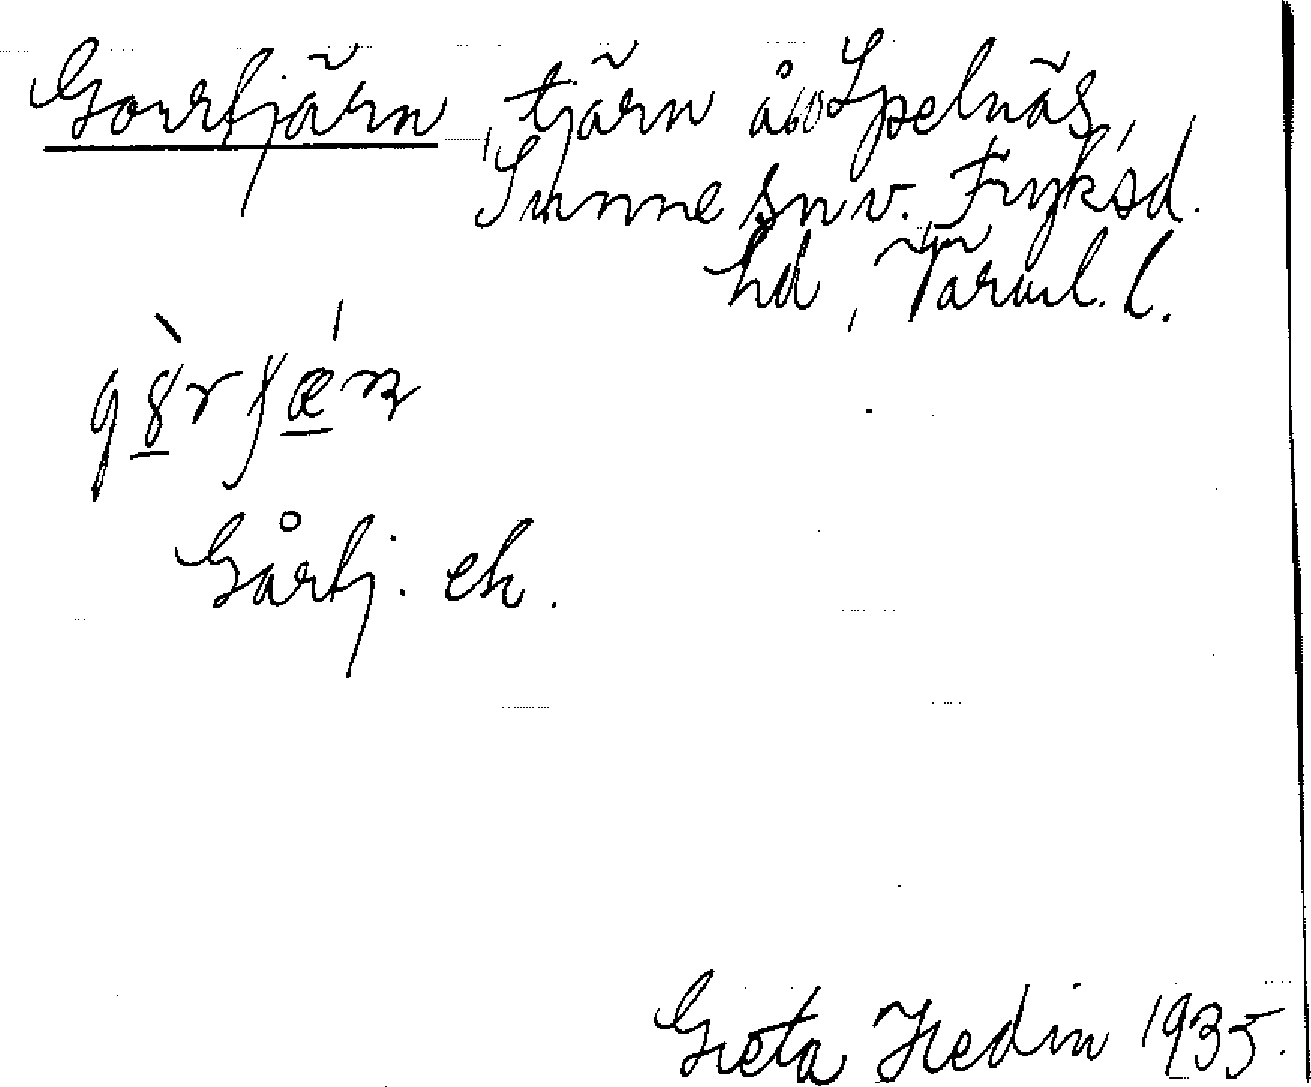 Gorrtjärn, tjärn å 60 Spelnäs,
Sunne sn v. Fryksd.
hd, Värml. l.
Gårtj. ek.
Greta Hedin 1935.